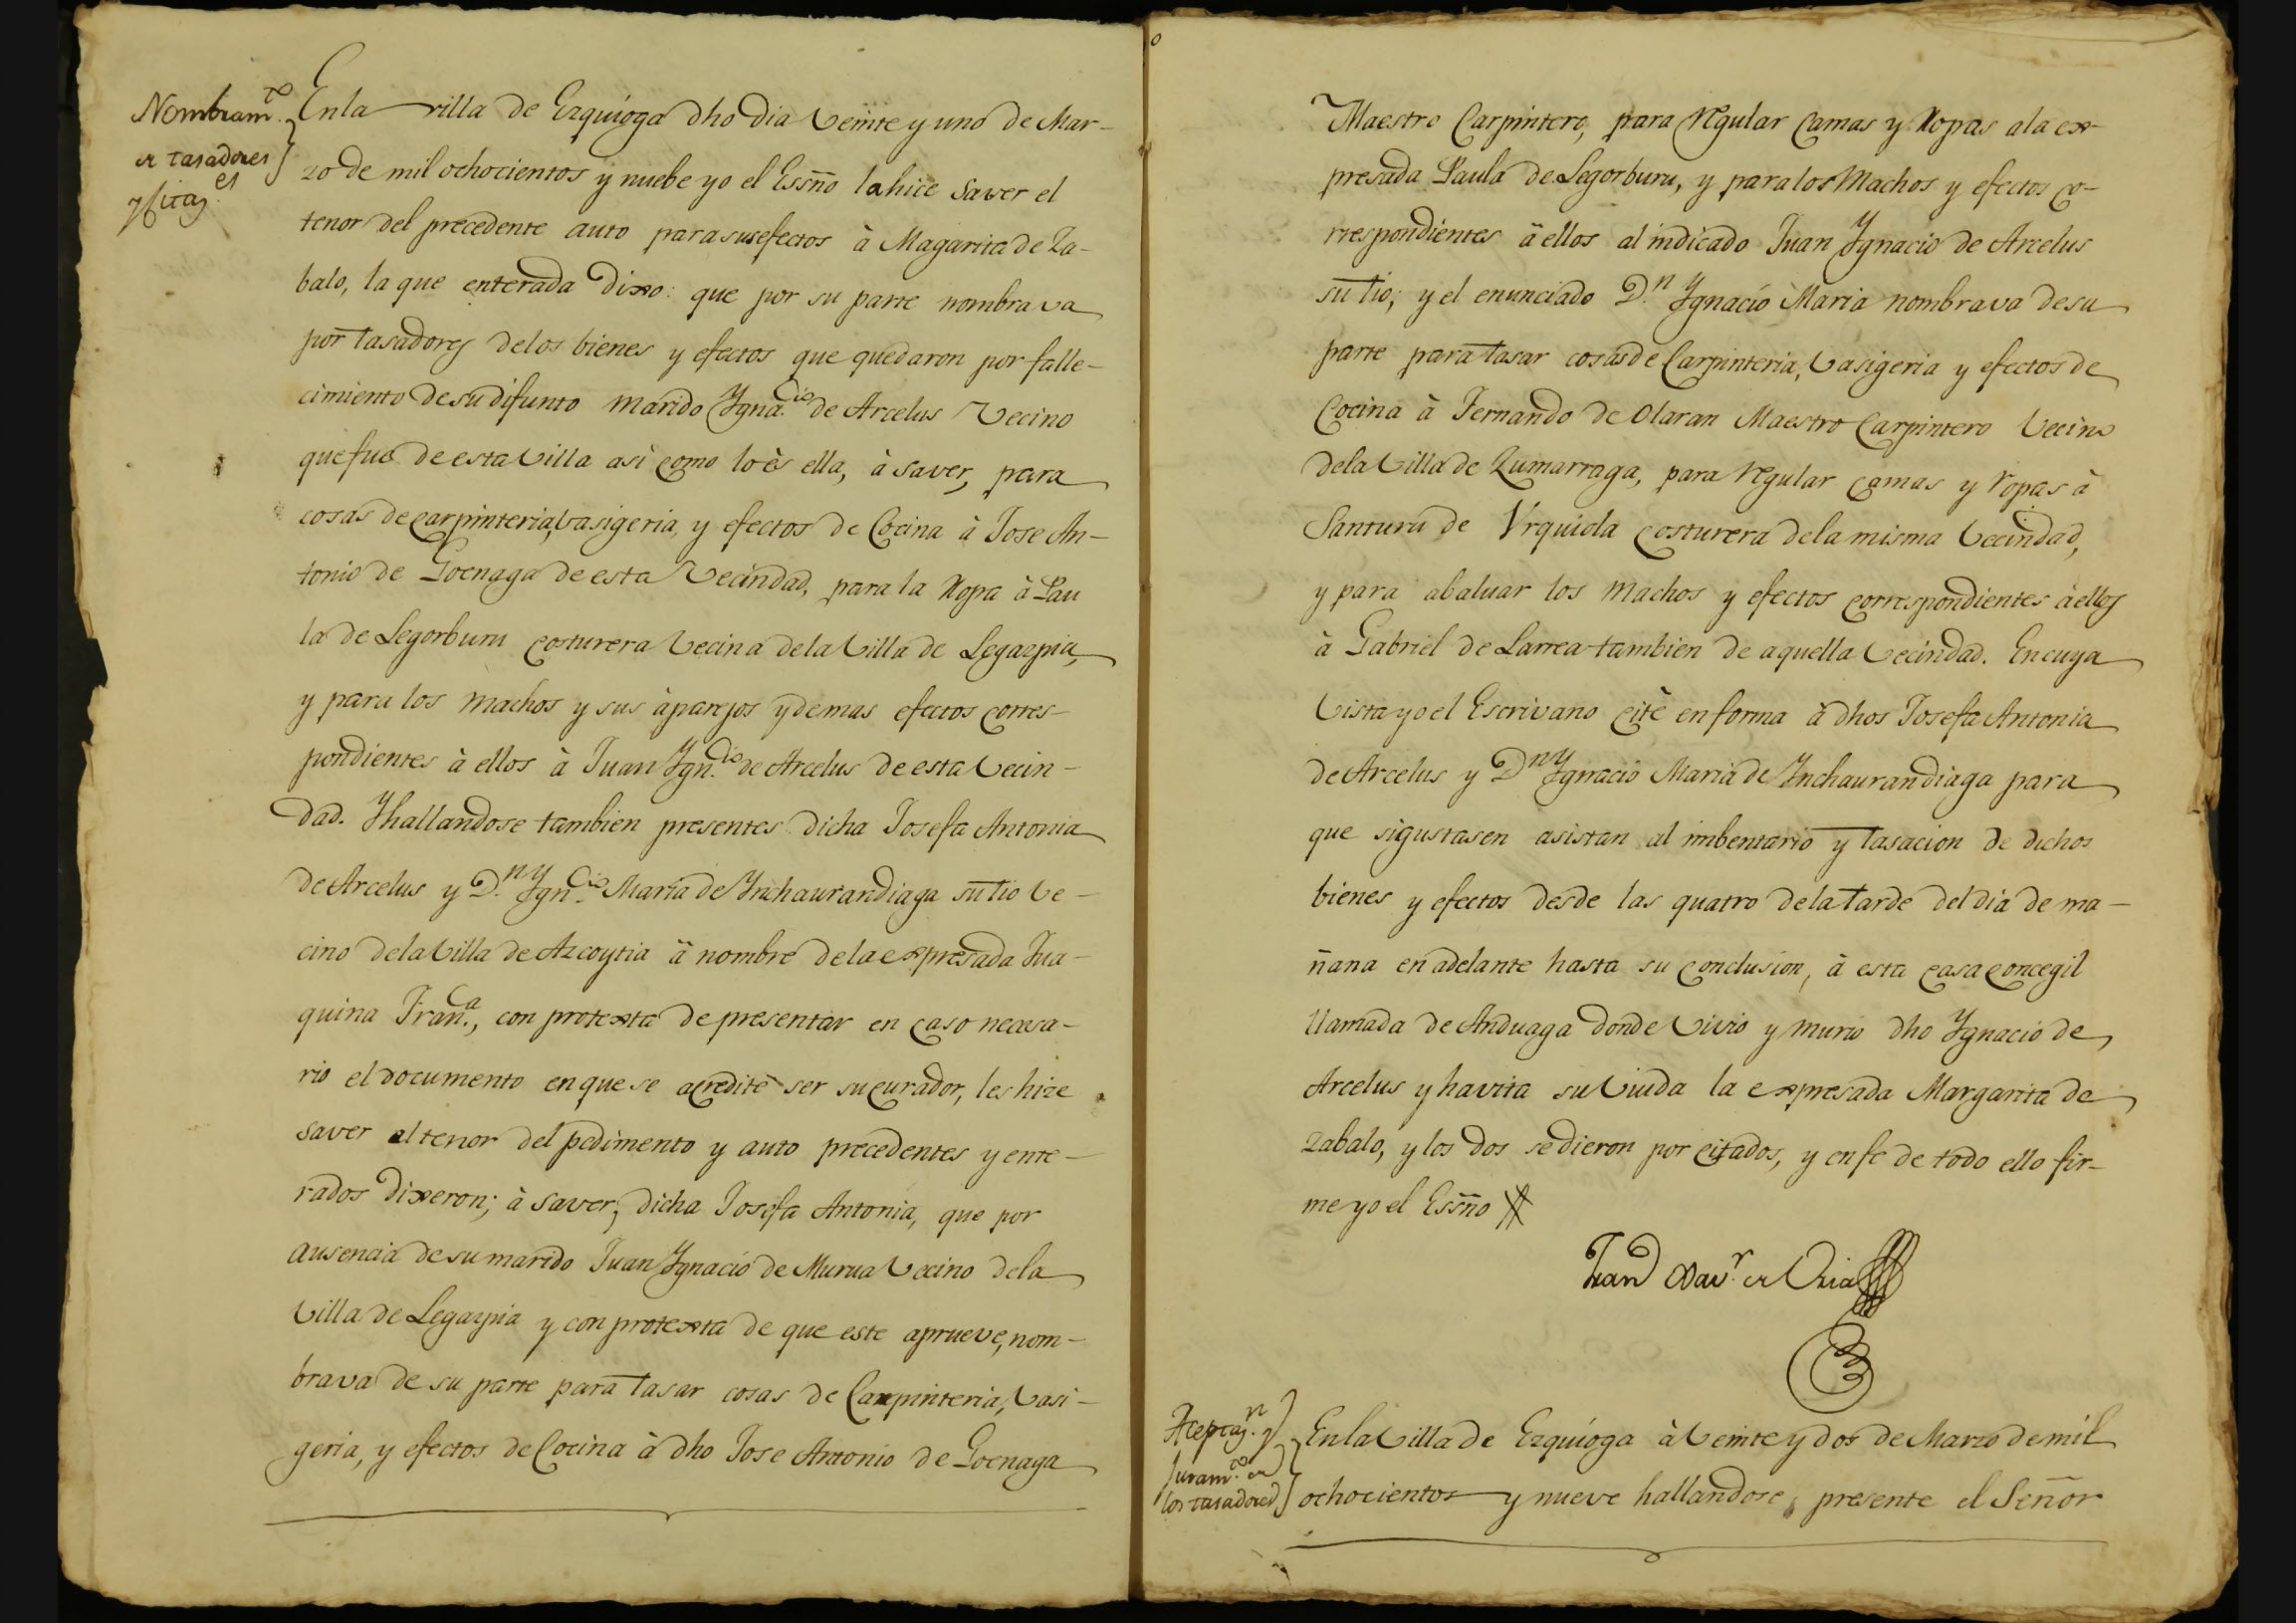 Nombram.to
de tasadores
y citaz.es
En la villa de Ezquioga dho dia veinte y uno de Mar-
zo de mil ochocientos y nuebe yo el Essño la hice saver el
tenor del precedente auto para sus efectos à Magarita de Za-
balo, la que enterada dixo: que por su parte nombrava
por tasadores de los bienes y efectos que quedaron por falle-
cimiento de su difunto marido Ygna.cio de Arcelus vecino
que fue de esta villa asi como lo ès ella, à saver, para
cosas de carpinteria, vasigeria, y efectos de Cocina à Jose An-
tonio de Goenaga de esta vecindad, para la Ropa à Pau
la de Legorburu costurera vecina de la villa de Legazpia,
y para los machos y sus àparejos y demas efectos corres-
pondientes à ellos à Juan Ygn.cio de Arcelus de esta vecin-
dad. Y hallandose tambien presentes dicha Josefa Antonia
de Arcelus y D.n Ygn.cio Maria de Ynchaurandiaga su tio ve-
cino de la villa de Azcoytia à nombre de la expresada Jua-
quina Fran.ca, con protexta de presentar en caso necesa-
rio el documento en que se acredite ser su curador, les hize
saver el tenor del pedimento y auto precedentes y ente-
rados dixeron; à saver, dicha Josefa Antonia, que por
ausencia de su marido Juan Ygnacio de Murua vecino de la
villa de Legazpia y con protexta de que este aprueve, nom-
brava de su parte para tasar cosas de Carpinteria, vasi-
geria, y efectos de Cocina à dho Jose Antonio de Goenaga
Maestro Carpintero, para regular camas y Ropas a la ex-
presada Paula de Legorburu, y para los Machos y efectos co-
rrespondientes à ellos al indicado Juan Ygnacio de Arcelus
su tio; y el enunciado D.n Ygnacio Maria nombrava de su
parte para tasar cosas de Carpinteria, vasigeria y efectos de
Cocina à Fernando de Olaran Maestro Carpintero vecino
de la villa de Zumarraga, para regular camas y ropas à
Santuru de Urquiola costurera de la misma vecindad,
y para abaluar los machos y efectos correspondientes à ellos
à Gabriel de Larrea tambien de aquella vecindad. En cuya
vista yo el Escrivano citè en forma à dhos Josefa Antonia
de Arcelus y D.n Ygnacio Maria de Ynchaurandiaga para
que si gustasen asistan al imbentario y tasacion de dichos
bienes y efectos desde las quatro de la tarde del dia de ma-
ñana en adelante hasta su conclusion, à esta casa concegil
llamada de Anduaga donde vivio y murio dho Ygnacio de
Arcelus y havita su viuda la expresada Margarita de
Zabalo, y los dos se dieron por citados, y en fe de todo ello fir-
me yo el Essño
Juan Xav.r de Uria
Aceptaz.n y
juram.to de
los tasadores
En la villa de Ezquioga à veinte y dos de Marzo de mil
ochocientos y nueve hallandose presente el Señor